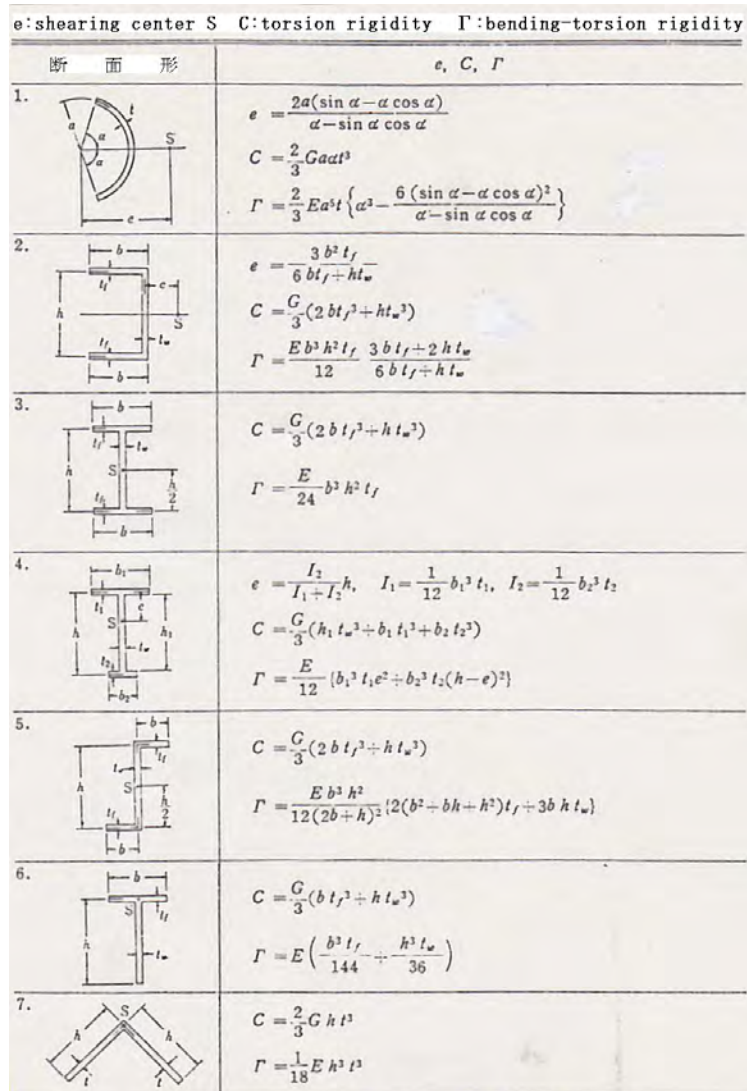 e:shearing center S C:torsion rigidity Γ:bending-torsion rigidity
断 面 形 e, C, Γ
1.
a t α α S e
e = 2a(sin α−α cos α) / α−sin α cos α
C = 2/3 Gaαt³
Γ = 2/3 Ea⁵t {α³− 6 (sin α−α cos α)² / α−sin α cos α}
2.
b t_f e h S t_f t_w b
e = 3 b² t_f / 6 bt_f+ht_w
C = G/3 (2 bt_f³+ht_w³)
Γ = E b³ h² t_f / 12 3 b t_f+2 h t_w / 6 b t_f+h t_w
3.
b t_f t_w h S h/2 t_f b
C = G/3 (2 b t_f³+h t_w³)
Γ = E/24 b³ h² t_f
4.
b₁ t₁ e h S h₁ t₂ t_w b₂
e = I₂ / I₁+I₂ h, I₁= 1/12 b₁³ t₁, I₂= 1/12 b₂³ t₂
C = G/3 (h₁ t_w³+b₁ t₁³+b₂ t₂³)
Γ = E/12 {b₁³ t₁e²+b₂³ t₂(h−e)²}
5.
b t_w t_f h S h/2 t_f b
C = G/3 (2 b t_f³+h t_w³)
Γ = E b³ h² / 12(2b+h)² {2(b²+bh+h²)t_f+3b h t_w}
6.
b S t_f h t_w
C = G/3 (b t_f³+h t_w³)
Γ = E ( b³ t_f / 144 + h³ t_w / 36 )
7.
S h h t t
C = 2/3 G h t³
Γ = 1/18 E h³ t³